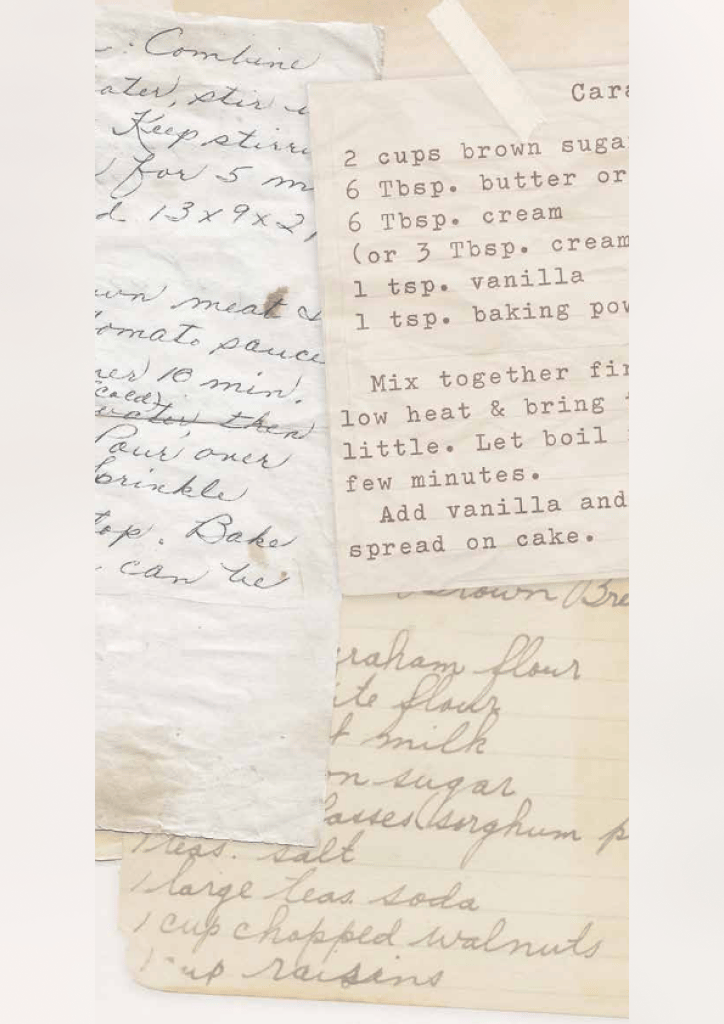 : Combine
ater, stir
Keep stirri
for 5 m
d 13x9x2,
wn meat &
tomato sauce
er 10 min.
water, then
Pour over
Sprinkle
top. Bake
can be
Cara
2 cups brown suga
6 Tbsp. butter or
6 Tbsp. cream
(or 3 Tbsp. cream
1 tsp. vanilla
1 tsp. baking pow
Mix together fir
low heat & bring t
little. Let boil
few minutes.
Add vanilla and
spread on cake.
Brown Bre
graham flour
ite flour
t milk
on sugar
lasses (sorghum p
1 teas. salt
1 large teas. soda
1 cup chopped walnuts
1 cup raisins